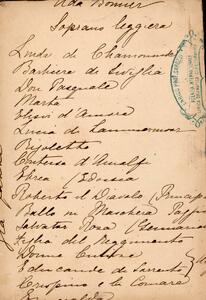 Ada Bonner
Soprano leggiera
Linda de Chamounix
Barbiere di Siviglia
Don Pasquale
Marta
Elisir d'Amore
Lucia de Lammermoor
Rigoletto
Contessa d'Amalfi
Ebrea (Eudossia
Roberto il Diavolo (Princip
Ballo in Maschera (Paggio
Salvator Rosa (Gennariello
Figlia del Reggimento
Donne Curiose
Educande di Sorrento
Crispino e la Comare